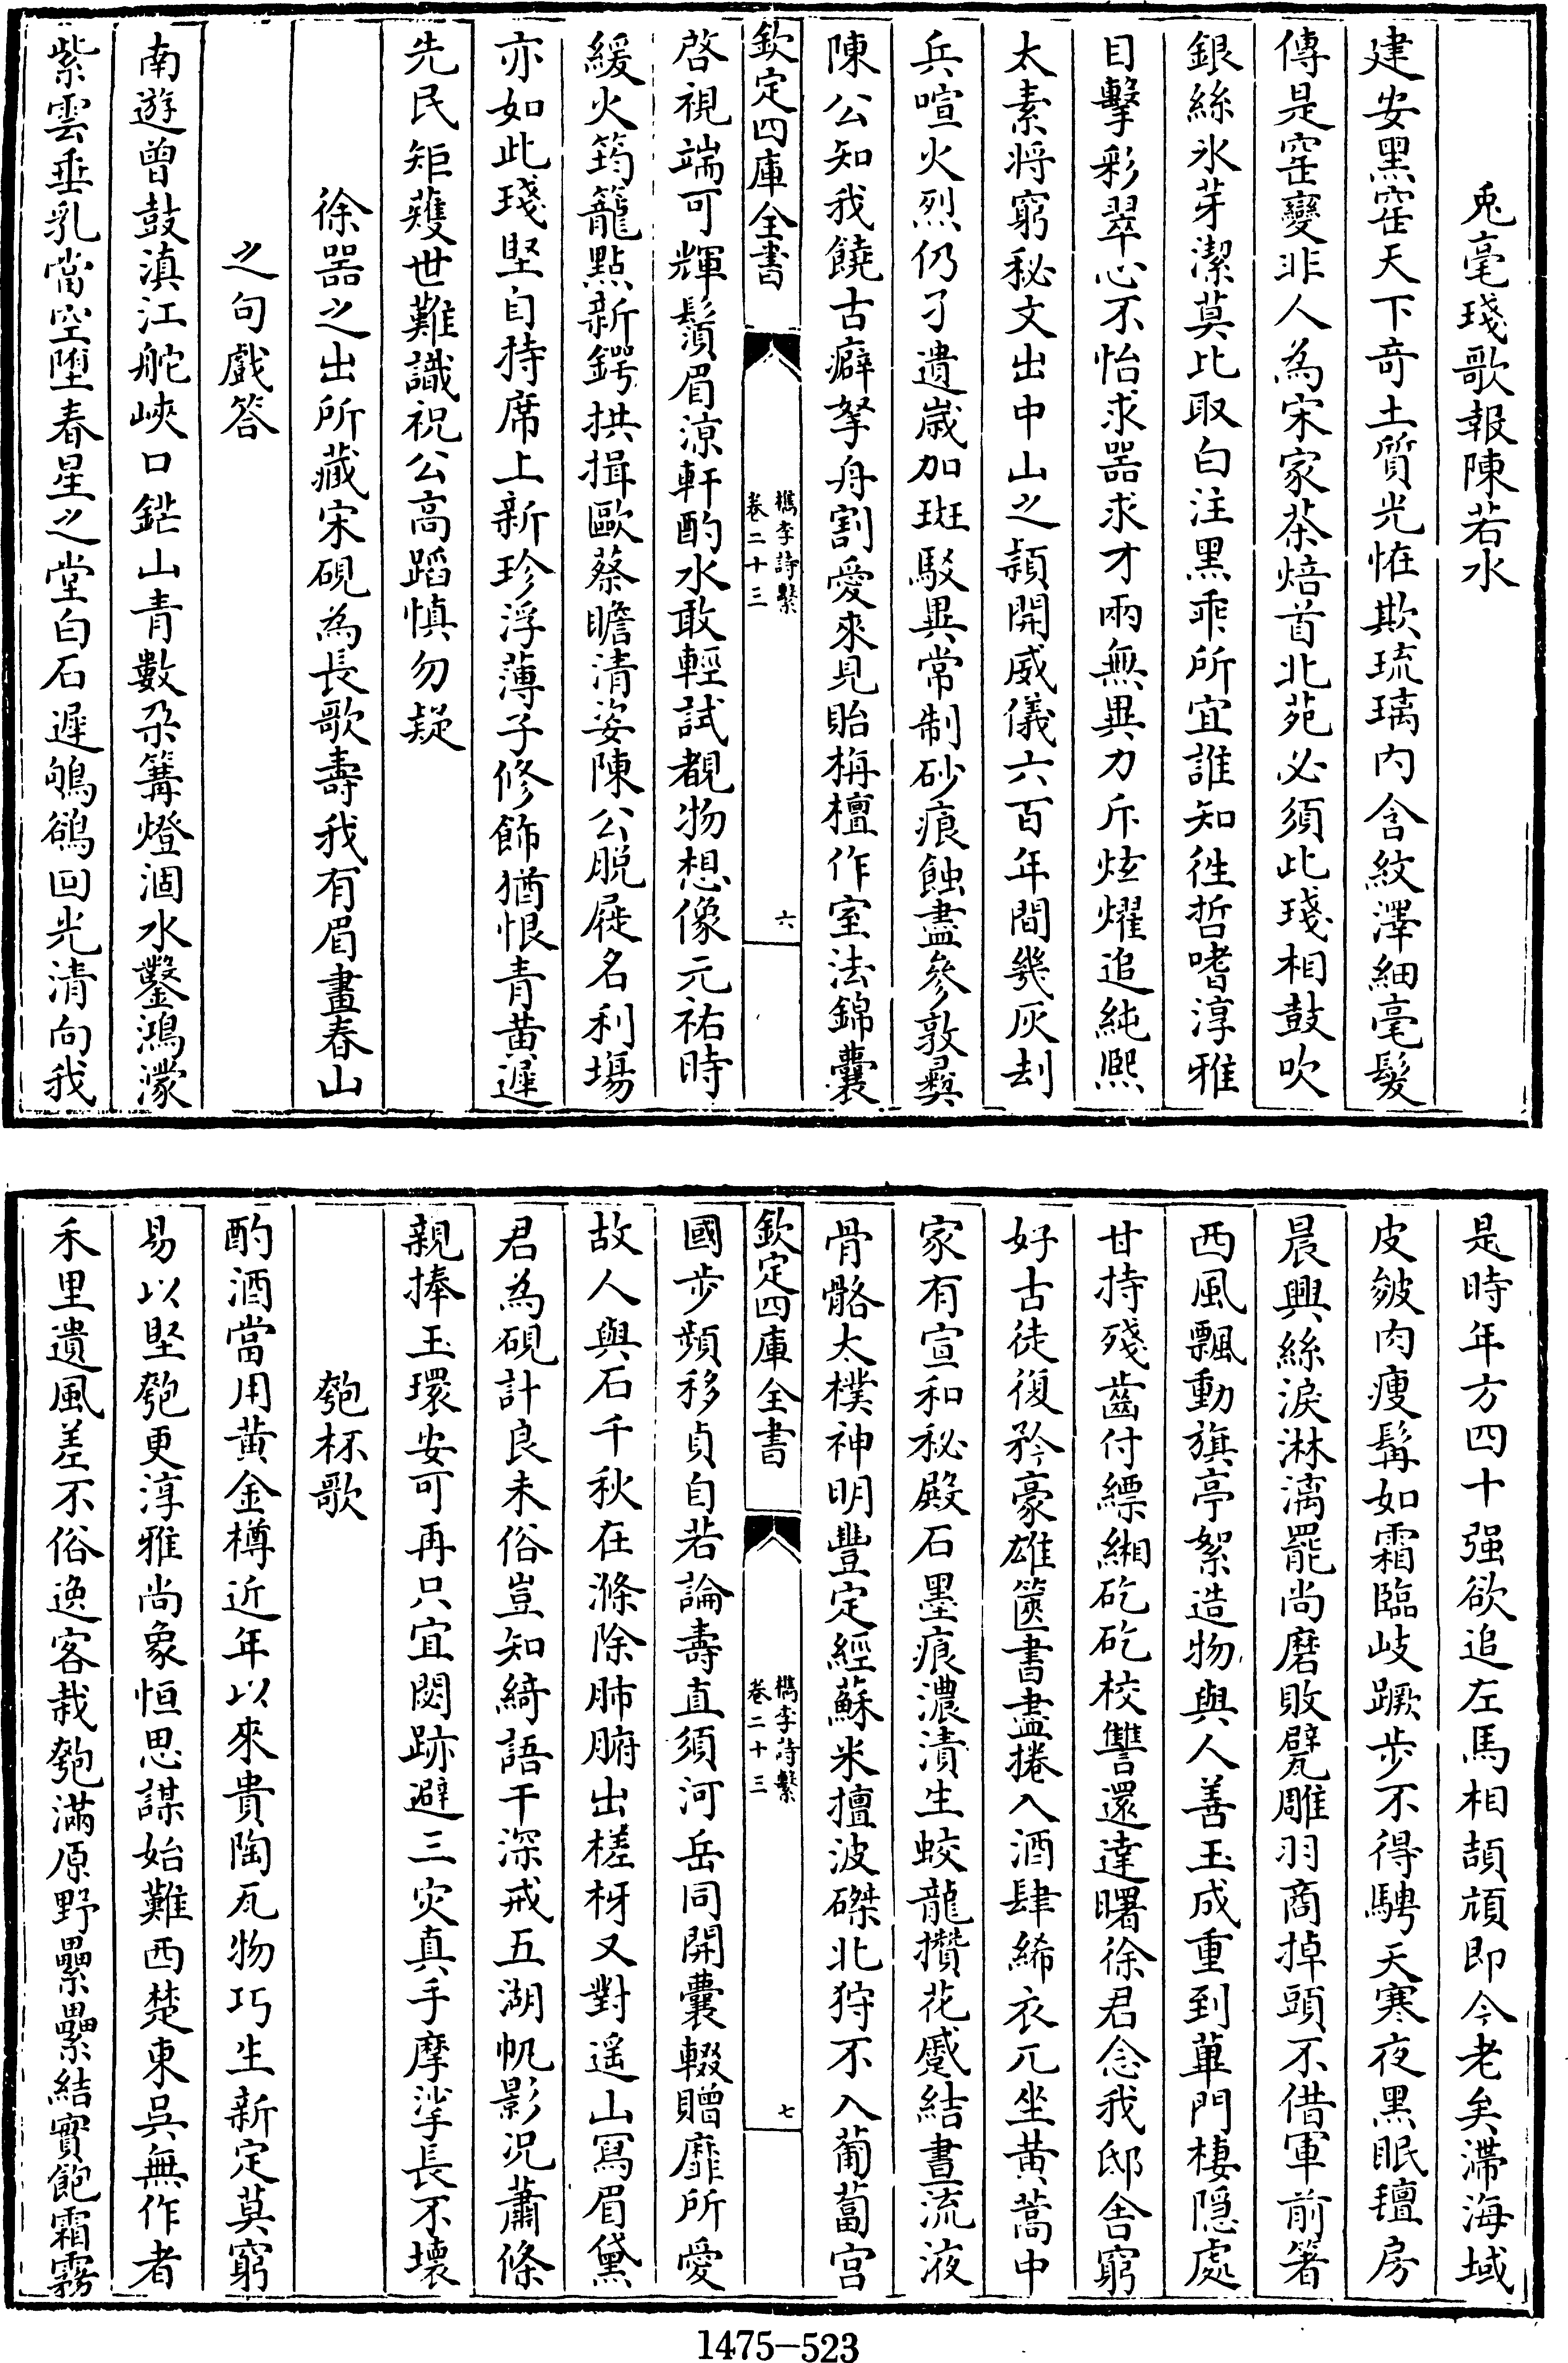 兎毫琖歌報陳若水
建安黑窑天下竒土質光恠欺琉璃内含紋澤細毫髮
傳是窑變非人為宋家茶焙首北苑必須此琖相鼓吹
銀絲氷芽潔莫比取白注黑乖所宜誰知徃哲嗜淳雅
目擊彩翠心不怡求器求才兩無異力斥炫燿追純熙
太素将窮秘文出中山之頴開威儀六百年間幾灰刦
兵喧火烈仍孑遺嵗加斑駁異常制砂痕蝕盡參敦彛
陳公知我饒古癖拏舟割愛來見貽栴檀作室法錦囊
欽定四庫全書
檇李詩繫
卷二十三
六
啓視端可輝鬚眉涼軒酌水敢輕試覩物想像元祐時
緩火筠籠點新鍔拱揖歐蔡瞻清姿陳公脱屣名利場
亦如此琖堅自持席上新珍浮薄子修飾猶恨青黄遲
先民矩矱世難識祝公高蹈慎勿疑
徐器之出所藏宋硯為長歌壽我有眉畫春山
之句戲答
南遊曾鼓滇江舵峽口鋩山青數朶篝燈涸水鑿鴻濛
紫雲垂乳當空墮春星之堂白石遲鴝鵒回光清向我
是時年方四十强欲追左馬相頡頏即今老矣滯海域
皮皴肉痩髯如霜臨岐蹶步不得騁天寒夜黑眠氊房
晨興絲淚淋漓罷尚磨敗甓雕羽商掉頭不借軍前箸
西風飄動旗亭絮造物與人善玉成重到蓽門棲隠處
甘持殘齒付縹緗矻矻校讐還達曙徐君念我邸舍窮
好古徒復矜豪雄篋書盡捲入酒肆絺衣兀坐黄蒿中
家有宣和秘殿石墨痕濃漬生蛟龍攢花蹙結晝流液
骨骼太樸神明豐定經蘇米擅波磔北狩不入葡萄宫
欽定四庫全書
檇李詩繫
卷二十三
七
國步頻移貞自若論壽直須河岳同開囊輟贈靡所愛
故人與石千秋在滌除肺腑出槎枒又對遥山冩眉黛
君為硯計良未俗豈知綺語干深戒五湖帆影况蕭條
親捧玉環安可再只宜閟跡避三灾真手摩挲長不壊
匏杯歌
酌酒當用黄金樽近年以來貴陶瓦物巧生新定莫窮
易以堅匏更淳雅尚象恒思謀始難西楚東吳無作者
禾里遺風差不俗逸客栽匏滿原野纍纍結實飽霜霧
1475-523